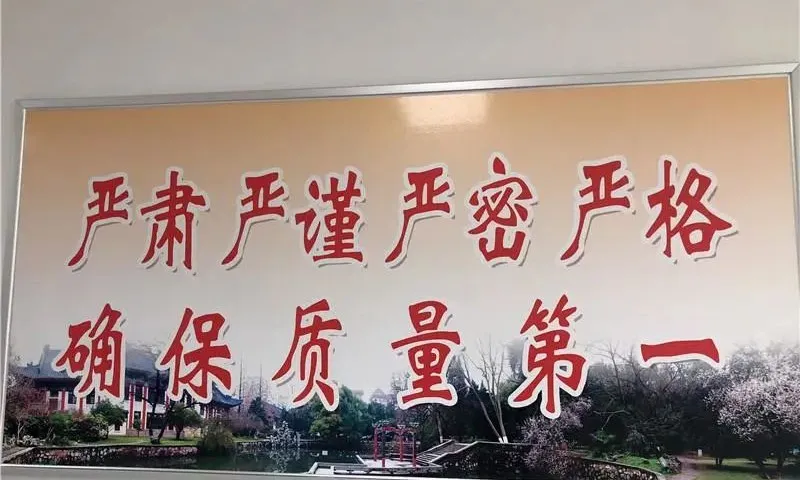 严肃严谨严密严格
确保质量第一